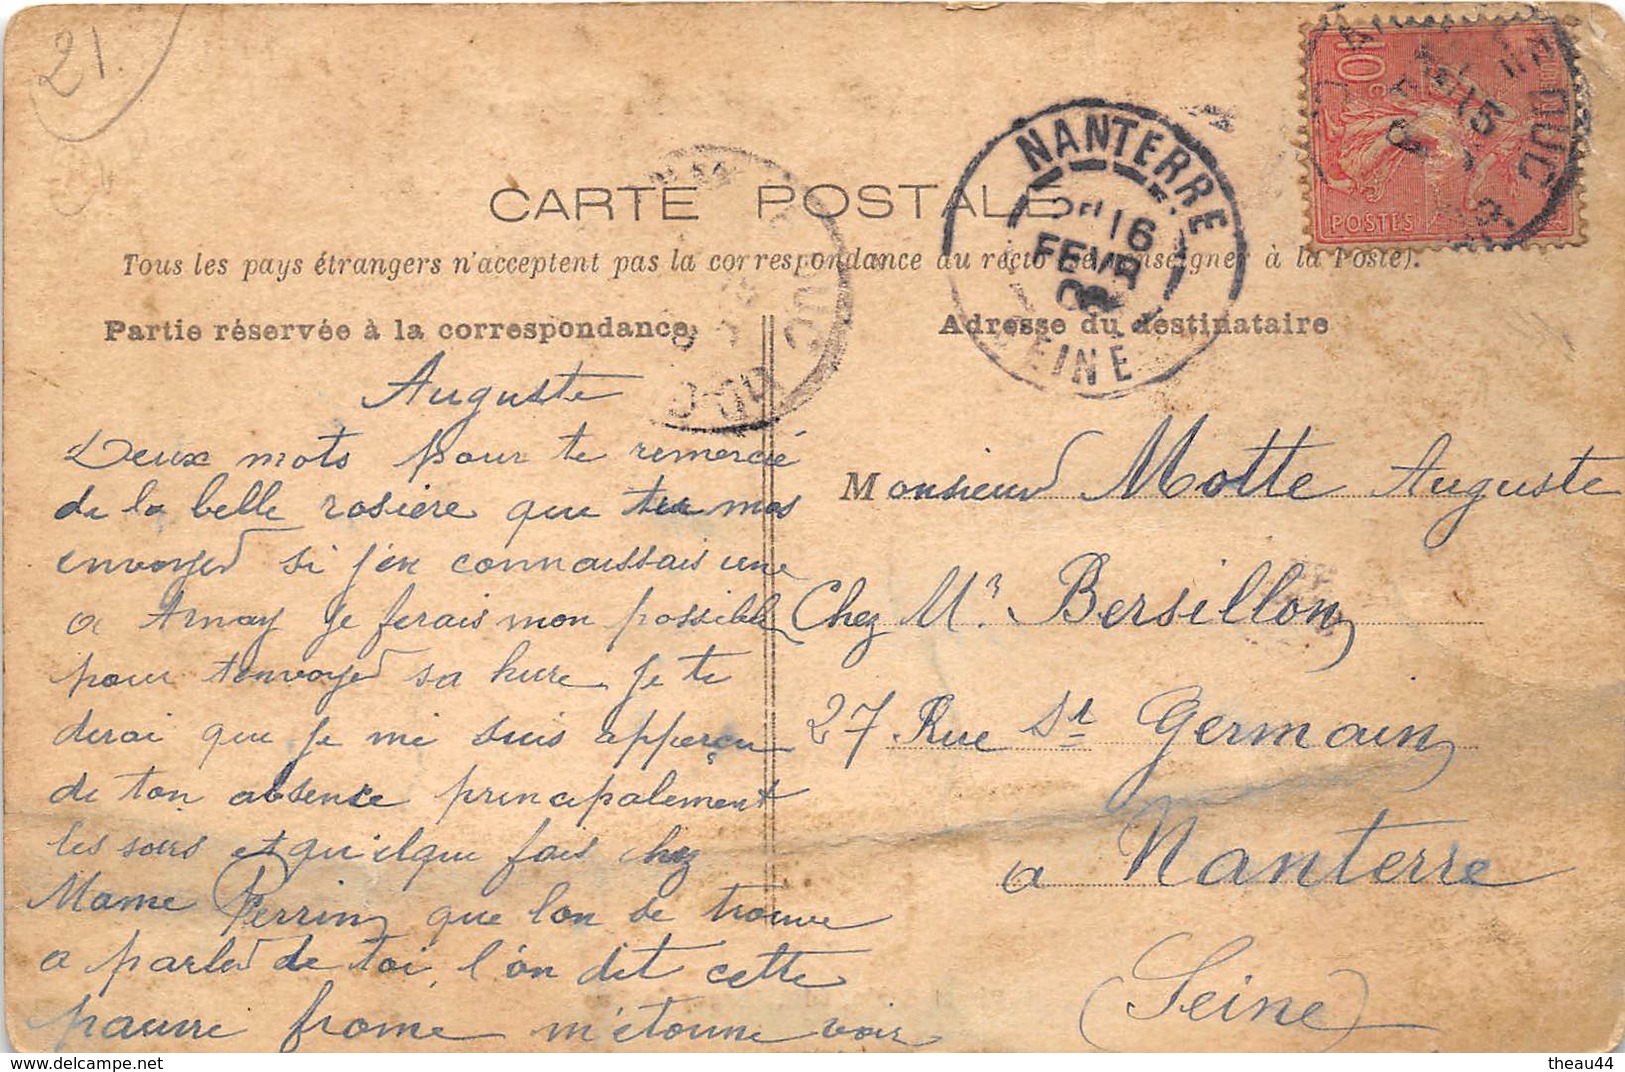 21.
CARTE POSTALE
Tous les pays étrangers n'acceptent pas la correspondance au recto (se renseigner à la Poste).
Partie réservée à la correspondance
Adresse du destinataire
NANTERRE
16
FEVR
SEINE
10c
POSTES
15
Auguste
Deux mots pour te remercié
de la belle rosière que tu mas
envoyer si j'en connaissais une
a Arnay je ferais mon possible
pour tenvoyer sa hure je te
dirai que je me suis apperçu
de ton absence principalement
les soirs et qu'ilque fois chez
Mame Perrin que lon se trouve
a parler de toi, l'on dit cette
pauvre frome m'étonne voir
Monsieur Motte Auguste
Chez Mr. Bersillon
27 Rue St Germain
a Nanterre
(Seine)
www.delcampe.net
theau44